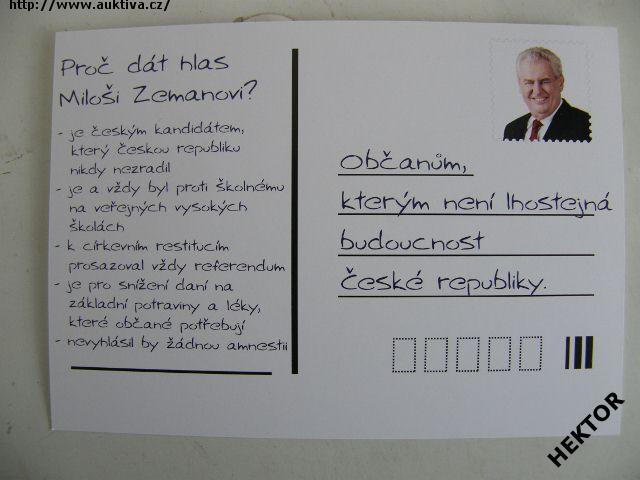 http://www.auktiva.cz/
Proč dát hlas
Miloši Zemanovi?
- je českým kandidátem,
který českou republiku
nikdy nezradil
- je a vždy byl proti školnému
na veřejných vysokých
školách
- k církevním restitucím
prosazoval vždy referendum
- je pro snížení daní na
základní potraviny a léky,
které občané potřebují
- nevyhlásil by žádnou amnestii
Občanům,
kterým není lhostejná
budoucnost
České republiky.
HEKTOR